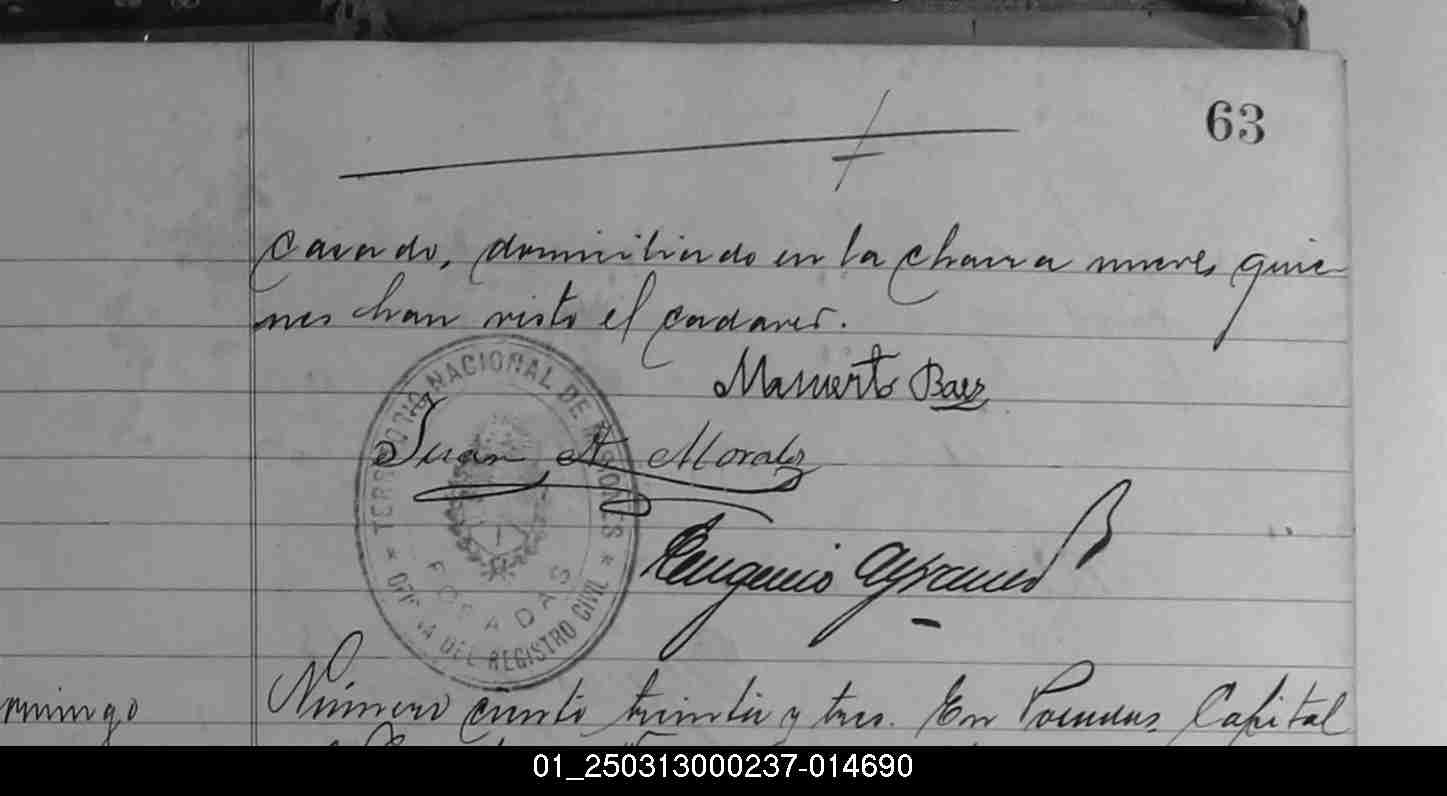 63
casado, domiciliado en la chacra nueve, quie
nes han visto el cadaver.
Mamerto Baez
TERRITORIO NACIONAL DE MISIONES
Juan A Morales
POSADAS
* OFICINA DEL REGISTRO CIVIL *
Eugenio
Número ciento treinta y tres. En Posadas, Capital
mingo
01_250313000237-014690